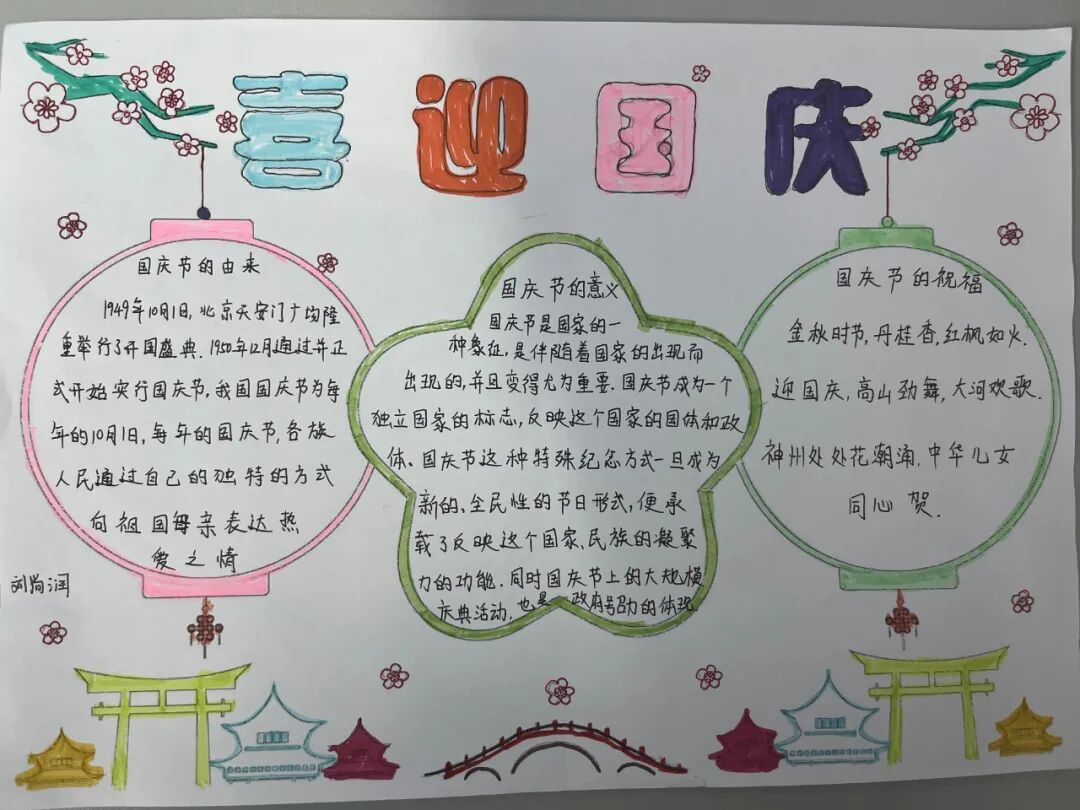 喜迎国庆
国庆节的由来
1949年10月1日,北京天安门广场隆
重举行了开国盛典.1950年12月通过并正
式开始实行国庆节,我国国庆节为每
年的10月1日,每年的国庆节,各族
人民通过自己的独特的方式
向祖国母亲表达热
爱之情
刘尚润
国庆节的意义
国庆节是国家的一
种象征,是伴随着国家的出现而
出现的,并且变得尤为重要.国庆节成为一个
独立国家的标志,反映这个国家的国体和政
体、国庆节这种特殊纪念方式一旦成为
新的,全民性的节日形式,便承
载了反映这个国家、民族的凝聚
力的功能.同时国庆节上的大规模
庆典活动,也是政府号召力的体现.
国庆节的祝福
金秋时节,丹桂香,红枫如火.
迎国庆,高山劲舞,大河欢歌.
神州处处花潮涌,中华儿女
同心贺.